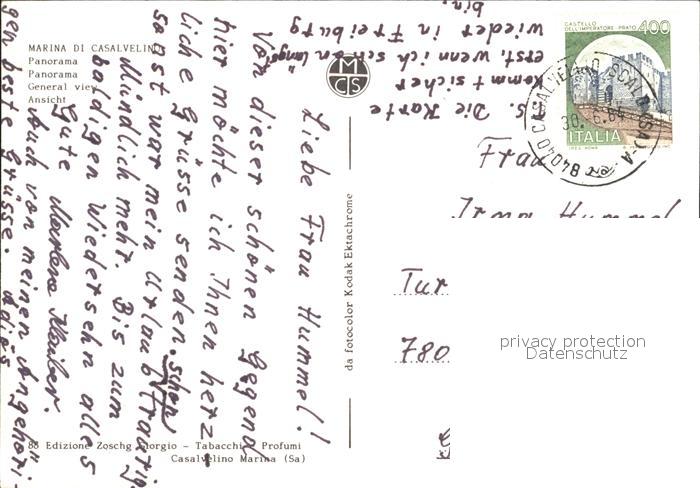 MARINA DI CASALVELINO
Panorama
Panorama
General view
Ansicht
Liebe Frau Hummel!
Von dieser schönen Gegend
hier möchte ich Ihnen herz-
liche Grüsse senden. Schon
sonst war mein Urlaub traurig.
Mündlich mehr. Bis zum
baldigen Wiedersehn alles
Gute
Auch von meinen Angehöri-
gen beste Grüsse.
S. Die Karte
kommt sicher
erst, wenn ich schon längst
wieder in Freiburg
bin.
MCS
da fotocolor Kodak Ektachrome
CASTELLO
DELL'IMPERATORE PRATO
400
ITALIA
84040 CASALVELINO
(SA)-A
30. 6. 84
Frau
Irma Hummel
Tur
780
privacy protection
Datenschutz
88 Edizione Zoschg Giorgio - Tabacchi Profumi
Casalvelino Marina (Sa)